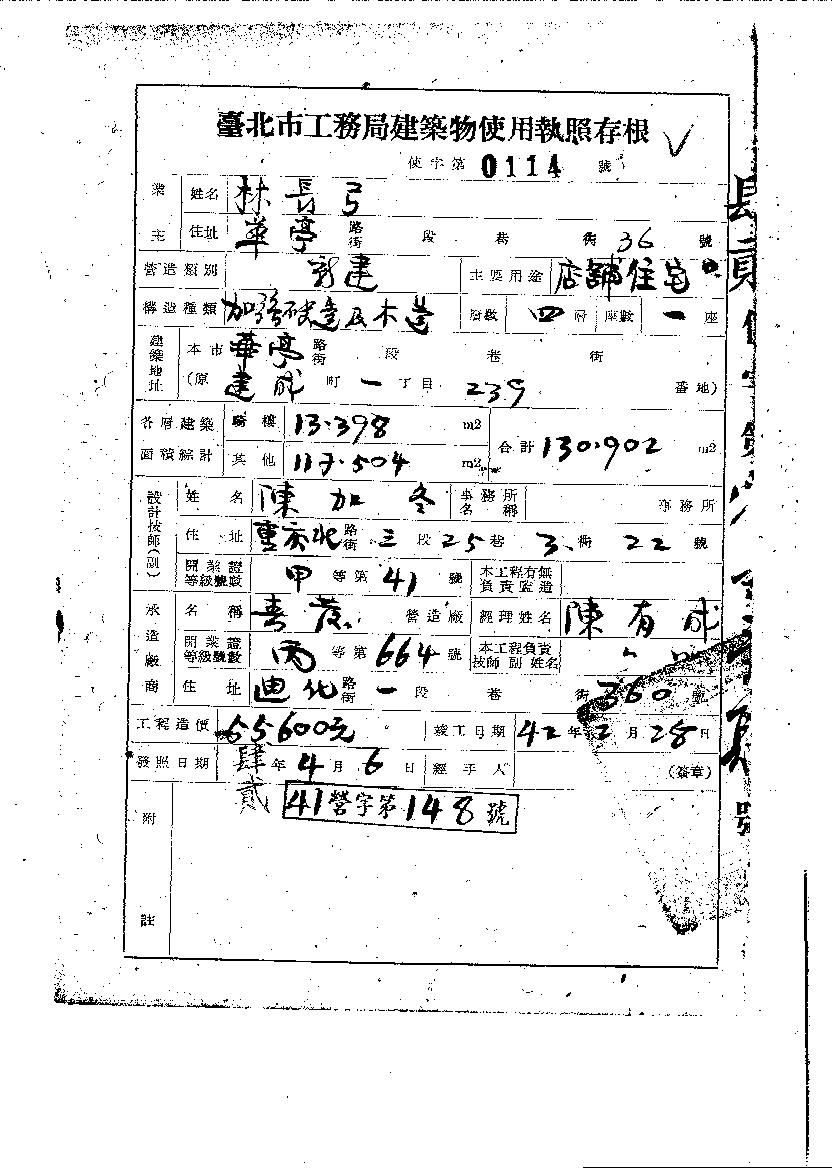 臺北市工務局建築物使用執照存根
使字第 0114 號
業主 姓名 林長弓
住址 華亭 路街 段 巷 衖 36 號
營造類別 新建 主要用途 店鋪住宅
構造種類 加強磚造及木造 層數 四層 座數 一座
建築地址 本市 華亭 路街 段 巷 衖
(原 建成 町 一 丁目 239 番地)
各層建築面積綜計 騎樓 13.398 m2 合計 130.902 m2
其他 117.504 m2
設計技師(副) 姓名 陳加冬 事務所名稱 事務所
住址 重慶北 路街 三段 25巷 3衖 22號
開業證等級號數 甲等第 41 號 本工程有無負責監造
承造廠商 名稱 春茂 營造廠 經理姓名 陳有成
開業證等級號數 丙等第 664 號 本工程負責技師副姓名
住址 迪化 路街 一段 巷 衖 360 號
工程造價 55600元 竣工日期 42年2月28日
發照日期 肆貳年4月6日 經手人 (簽章)
41營字第148號
附註